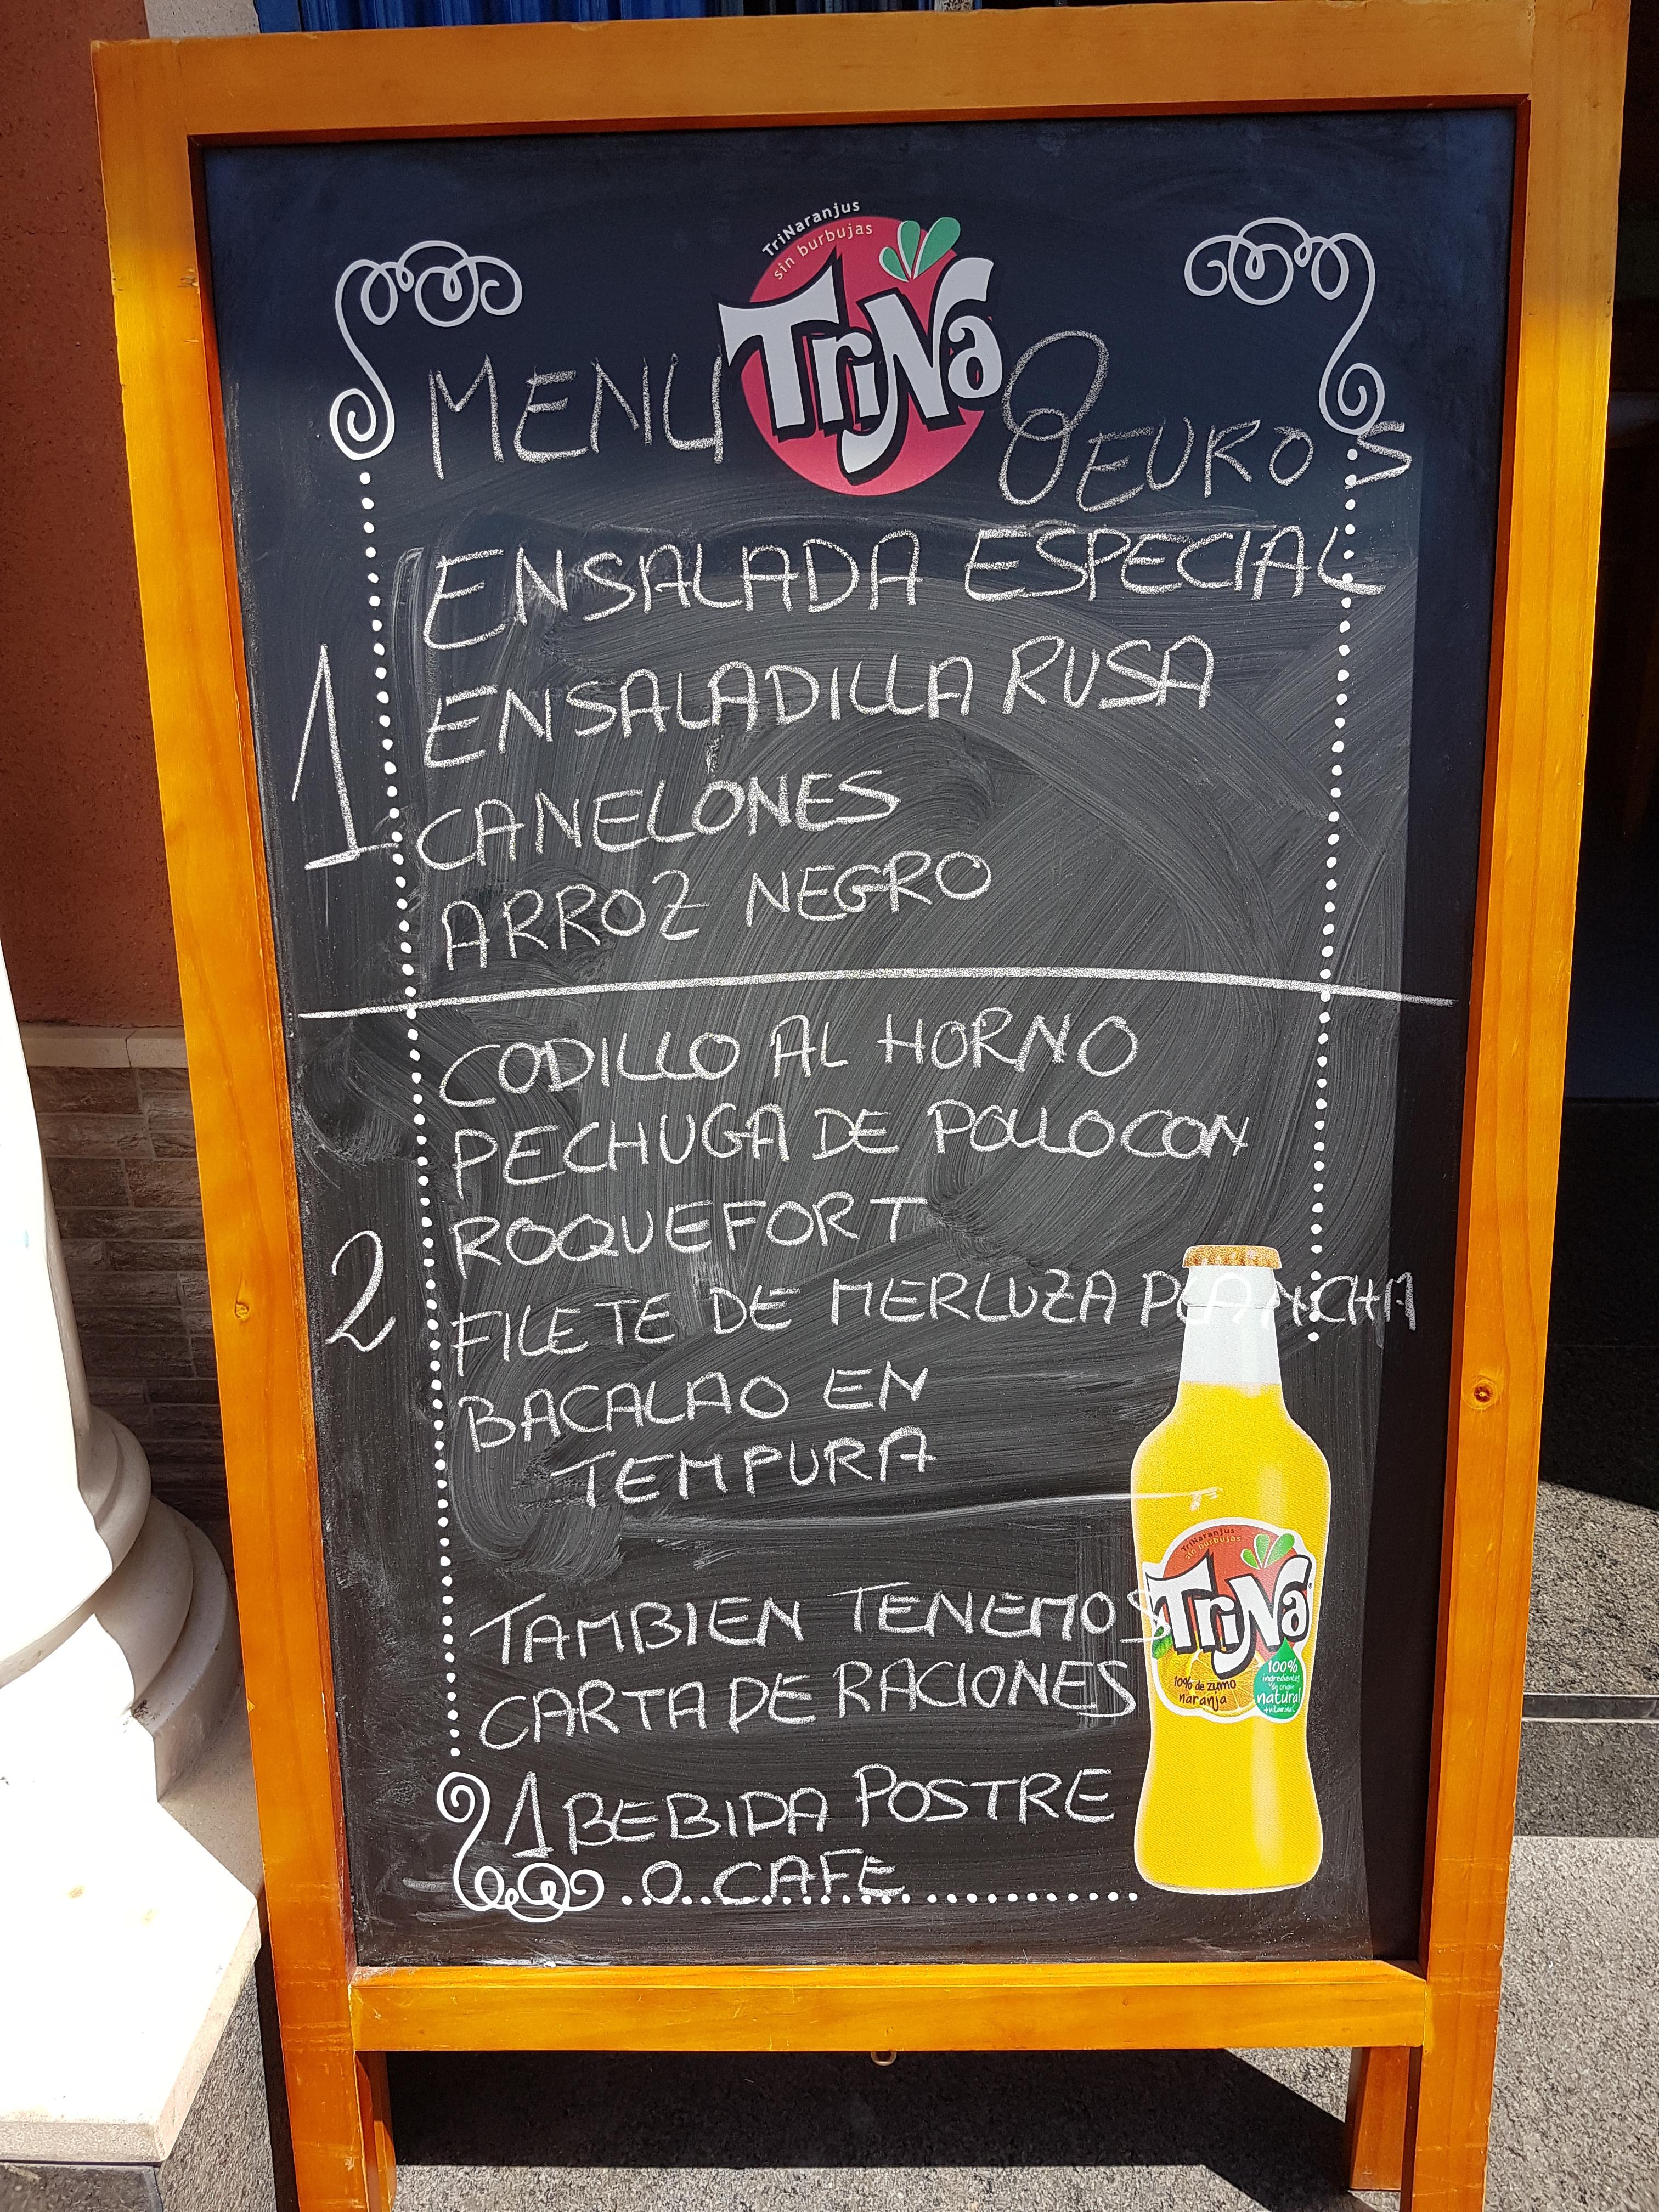 TriNaranjus
sin burbujas
TriNa
MENU 8 EUROS
1
ENSALADA ESPECIAL
ENSALADILLA RUSA
CANELONES
ARROZ NEGRO
2
CODILLO AL HORNO
PECHUGA DE POLLO CON
ROQUEFORT
FILETE DE MERLUZA PLANCHA
BACALAO EN
TEMPURA
TriNaranjus
sin burbujas
TriNa
100%
ingredientes
de origen
natural
+vitaminas
10% de zumo
naranja
TAMBIEN TENEMOS
CARTA DE RACIONES
1 BEBIDA POSTRE
O CAFE